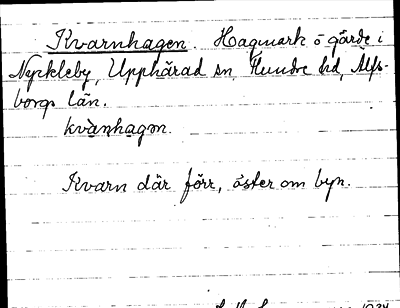 Kvarnhagen. Hagmark o gärde i
Nyckleby, Upphärad sn, Flundre hd, Älfs-
borgs län.
kvànhagən.
Kvarn där förr, öster om byn.
1934